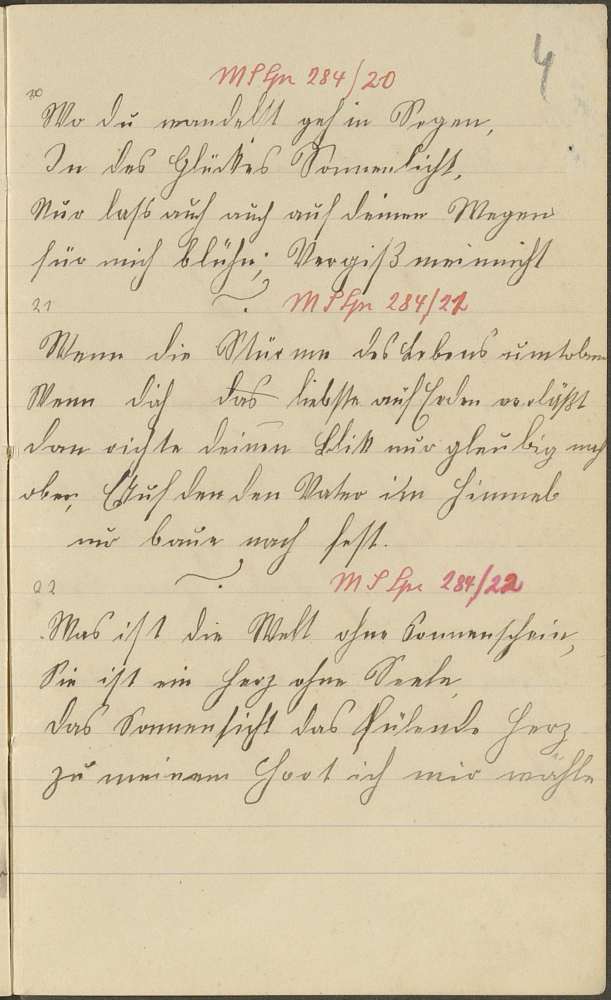 4
MS Gr 284/20
20
Wo du wandelst geh in Segen,
In des Glückes Sonnenlicht,
Nur lass auch auch auf deinen Wegen
für mich blühn; Vergiß meinnicht
21 MS Gr 284/21
Wenn die Stürme des Lebens umtoben
Wenn dich das liebste auf Erden verläßt
dan richte deinen Blik nur gleubig nach
oben, Auf den den Vater im Himmel
nur baue noch fest.
22 MS Gr 284/22
Was ist die Welt ohne Sonnenschein,
Sie ist ein Herz ohne Seele
das Sonnenlicht das fülende Herz
zu meinem Hort ich mir wähle